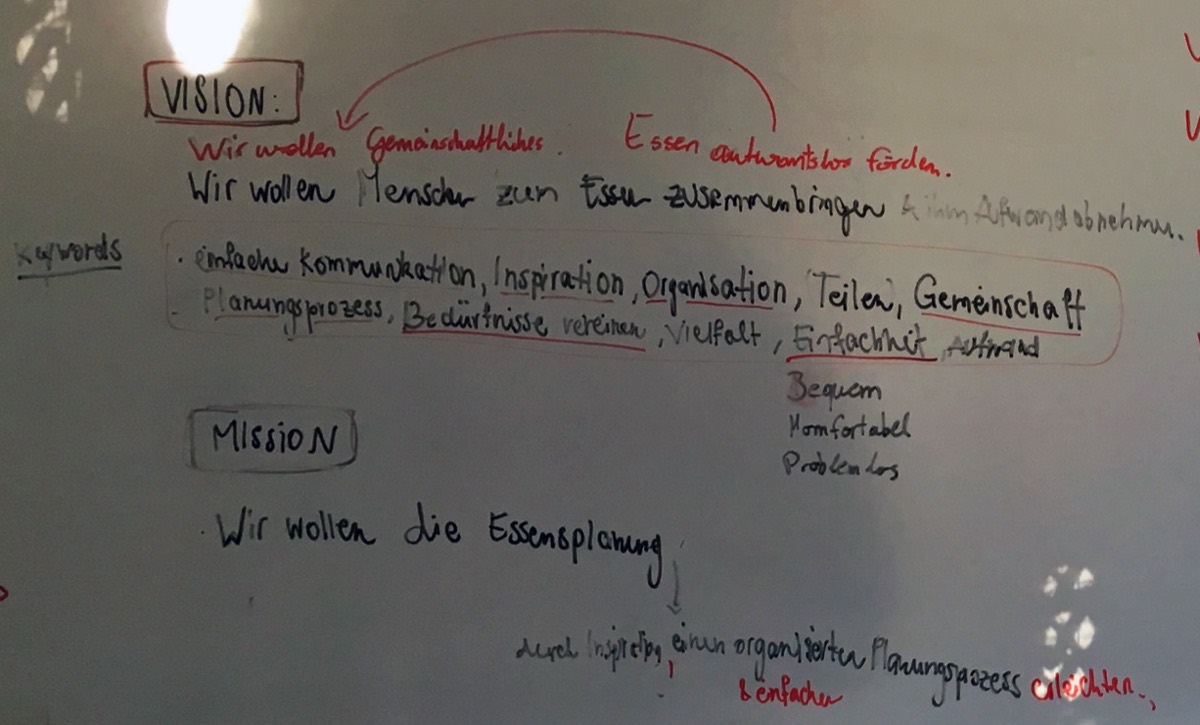 VISION:
Wir wollen Gemeinschaftliches. Essen autwantslos förden.
Wir wollen Menschen zum Essen zusammenbringen & ihm Aufwand abnehmen.
Keywords
· einfache Kommunikation, Inspiration, Organisation, Teilen, Gemeinschaft
- Planungsprozess, Bedürfnisse vereinen, Vielfalt, Einfachheit, Aufwand
Bequem
Komfortabel
Problemlos
MISSION
· Wir wollen die Essensplanung
durch Inspiration, einen organisierten Planungsprozess erleichtern.,
& einfachen